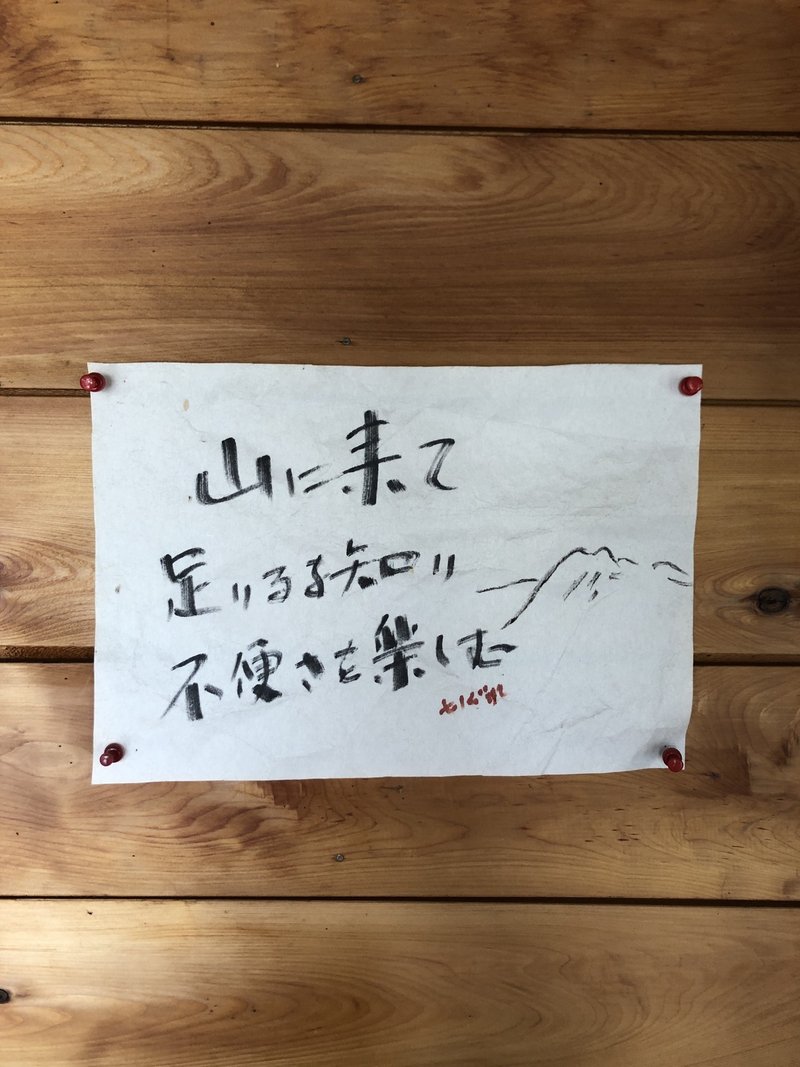 山に来て
足りるる知り
不便さを楽しむ